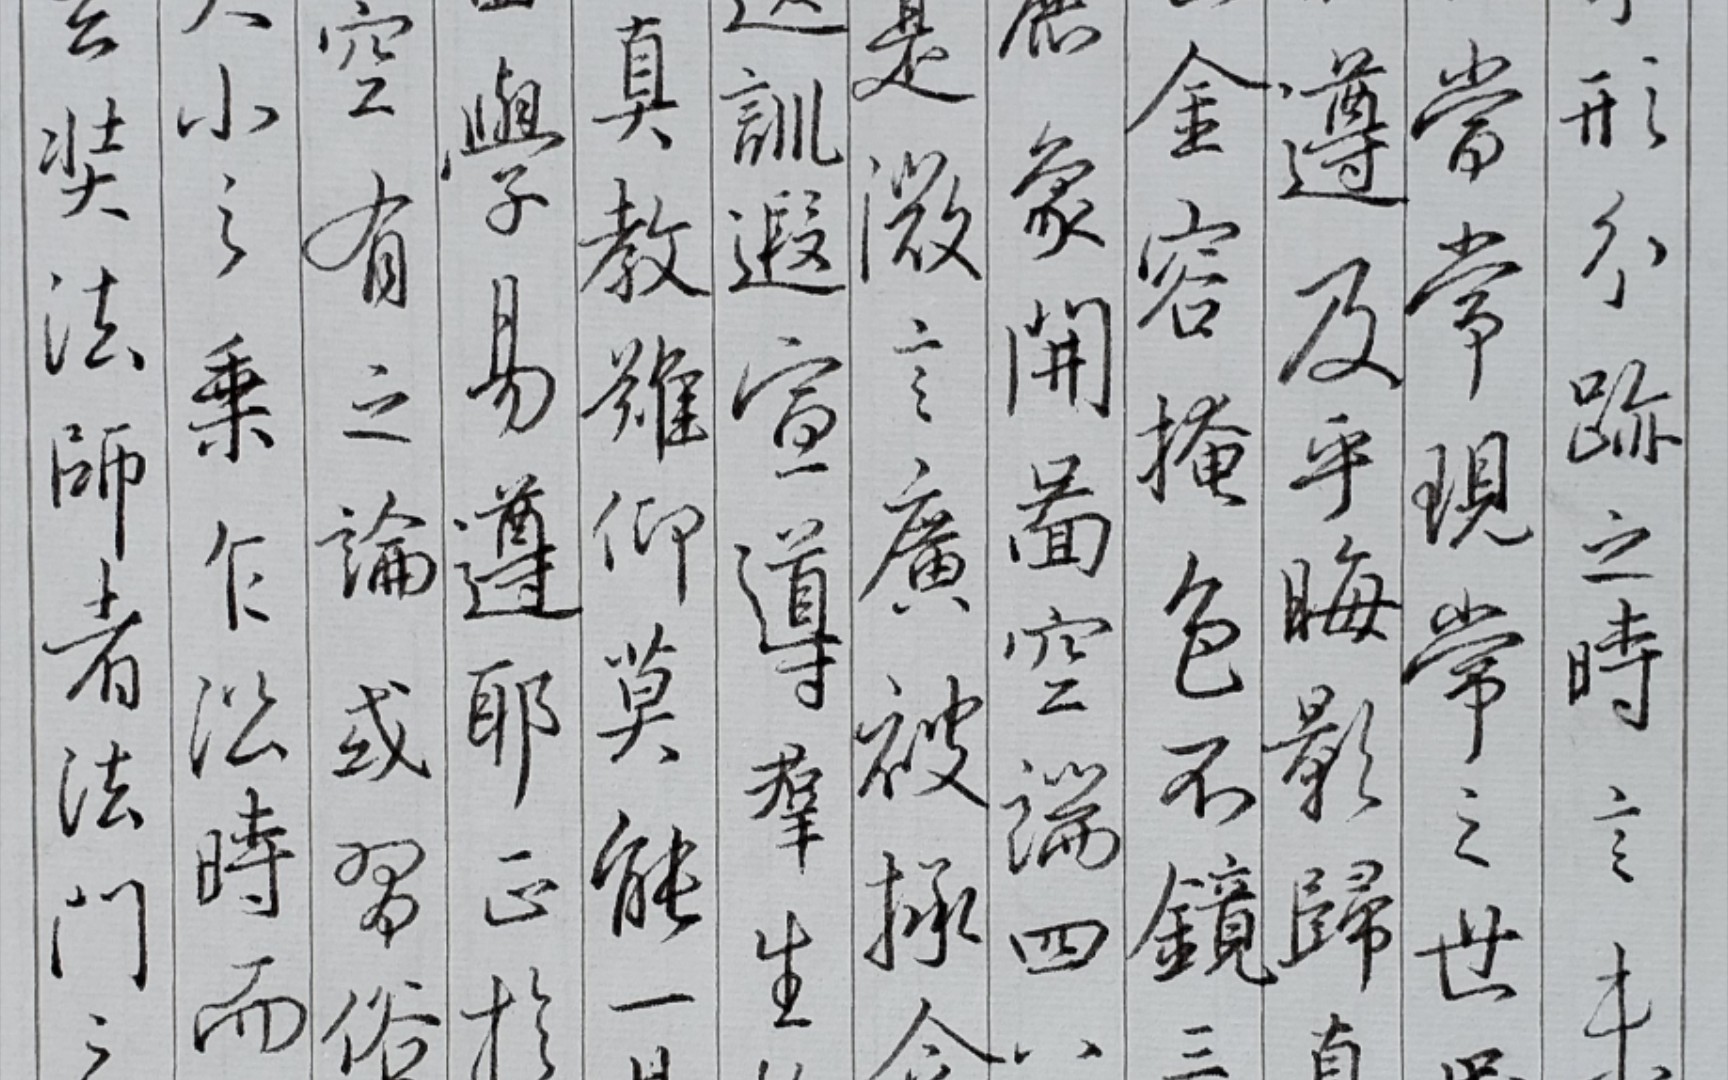 形分跡之時言未
當常現常之世
遵及乎晦影歸真
金容掩色不鏡三
麗象開圖空端四八
是微言廣被拯含
訓遐宣導羣生
真教難仰莫能一
學易遵耶正於
空有之論或習俗
大小之乘乍沿時而
玄奘法師者法門之